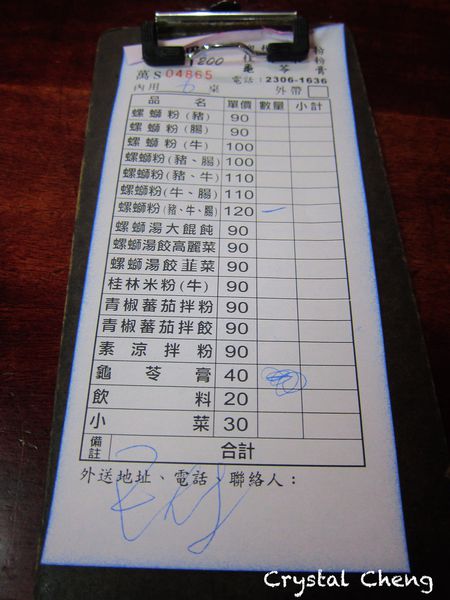 粉
1200 桂 粉
龜 苓 膏
萬 S 04865 電話:2306-1636
內用 桌 外帶
品名 單價 數量 小計
螺螄粉(豬) 90
螺螄粉(腸) 90
螺螄粉(牛) 100
螺螄粉(豬、腸) 100
螺螄粉(豬、牛) 110
螺螄粉(牛、腸) 110
螺螄粉(豬、牛、腸) 120 一
螺螄湯大餛飩 90
螺螄湯餃高麗菜 90
螺螄湯餃韮菜 90
桂林米粉(牛) 90
青椒蕃茄拌粉 90
青椒蕃茄拌餃 90
素涼拌粉 90
龜苓膏 40
飲料 20
小菜 30
備註 合計
外送地址、電話、聯絡人:
Crystal Cheng